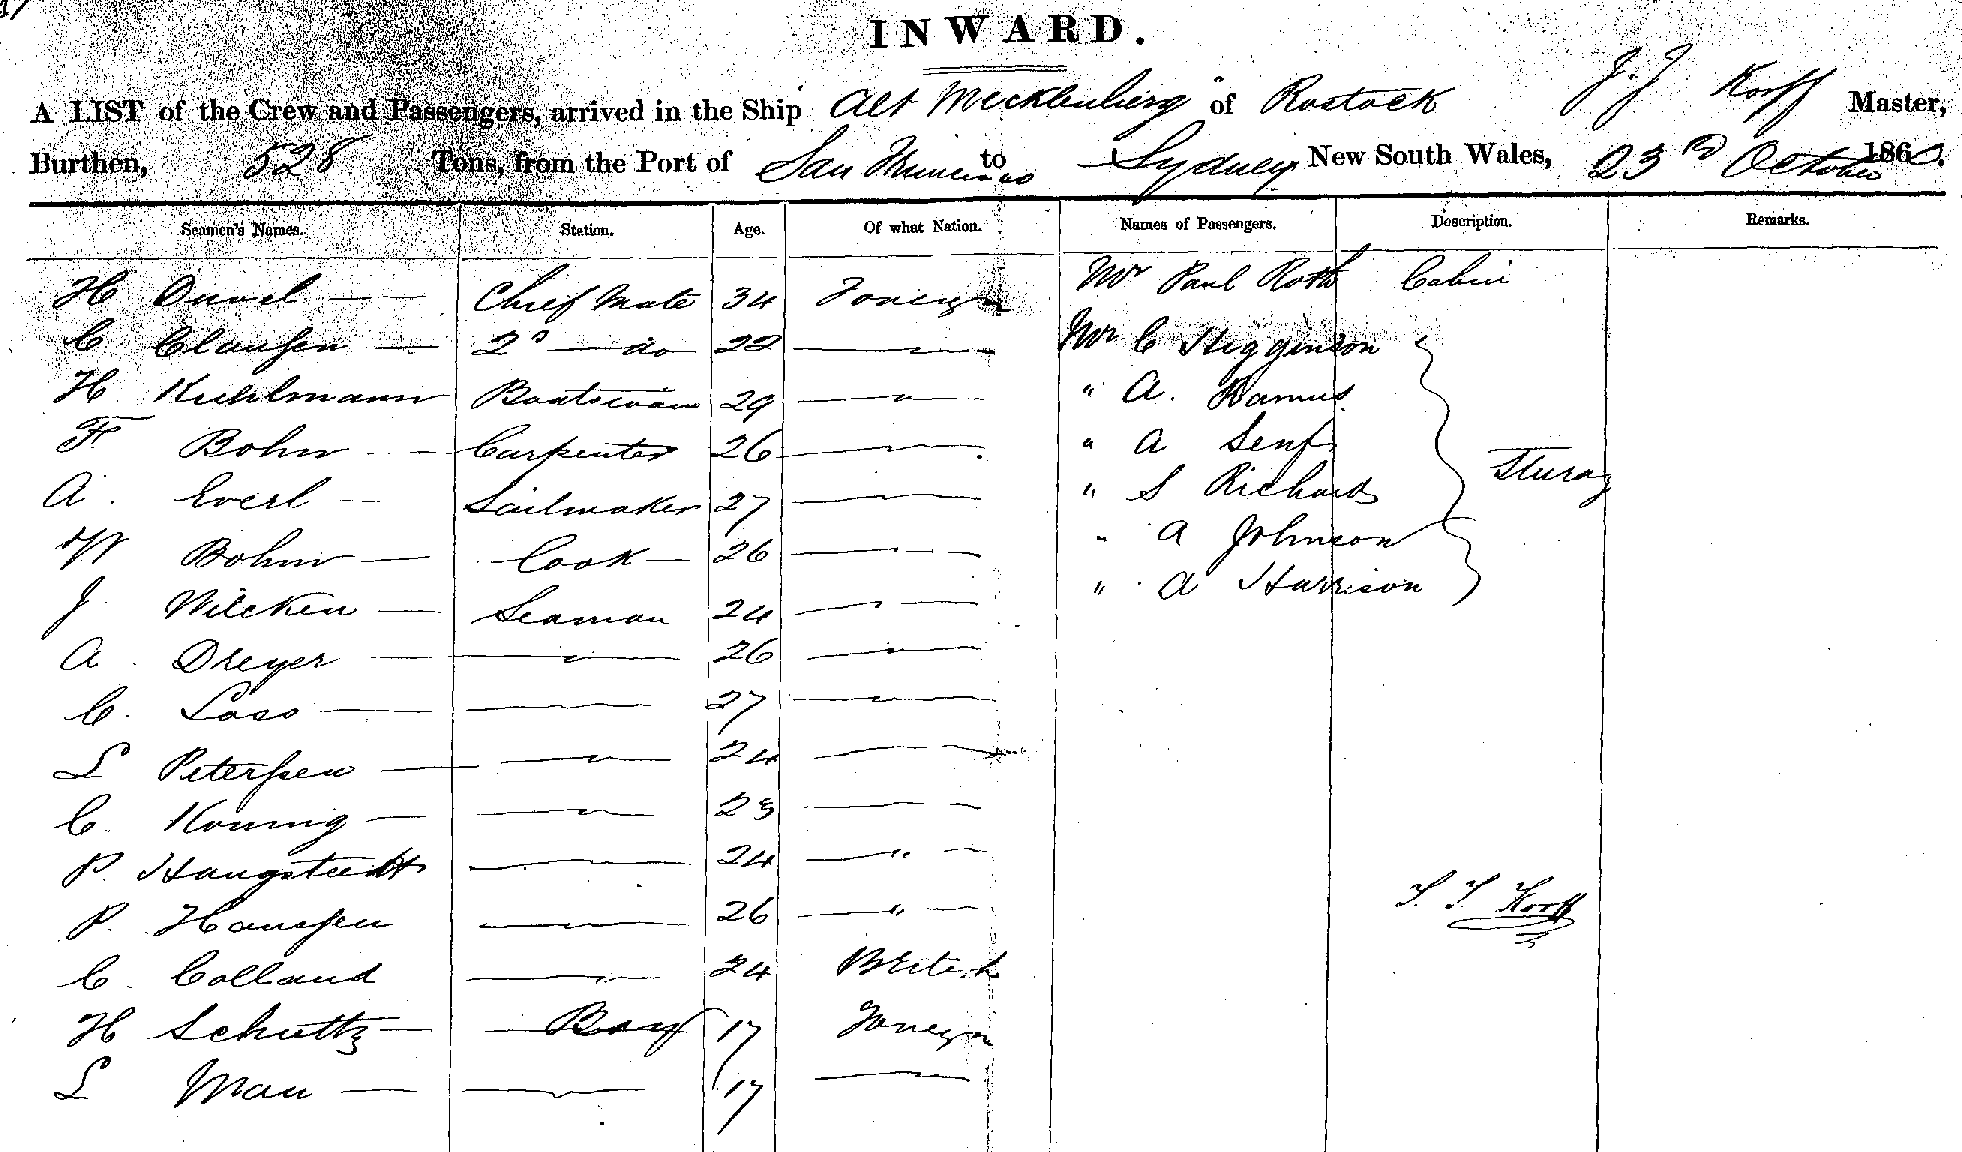 INWARD.
A LIST of the Crew and Passengers, arrived in the Ship Alt Mecklenburg of Rostock J. J Korff Master,
Burthen, 528 Tons, from the Port of San Francisco to Sydney New South Wales, 23rd October 186
Seamen's Names. Station. Age. Of what Nation. Names of Passengers. Description. Remarks.
H Chief Mate 34 Foreign Mr Paul Roth Cabin
C Claussen — 2d — do 22 — " — Mr C Higginson
H Kuhlmann Boatswain 29 — " — " A.
F Bohn — Carpenter 26 — " A Senf
A. Everl — Sailmaker 27 — " S Richards
W Bohm — Cook — 26 — " — " A Johnson
J Wilcken — Seaman 24 — " — " A Harrison
A. Dreyer — " — 26 — " —
C. — — 27 — " —
L Peterssen — " — 24 — " —
C. Konnig — " — 23 — " —
P. Haugstedt — 24 — " —
P. Hanssen — 26 — " — J. J. Korff
C. Colland — " — 24 British
H Schultz — Boy 17 Foreign
L Mau — — " — 17 —